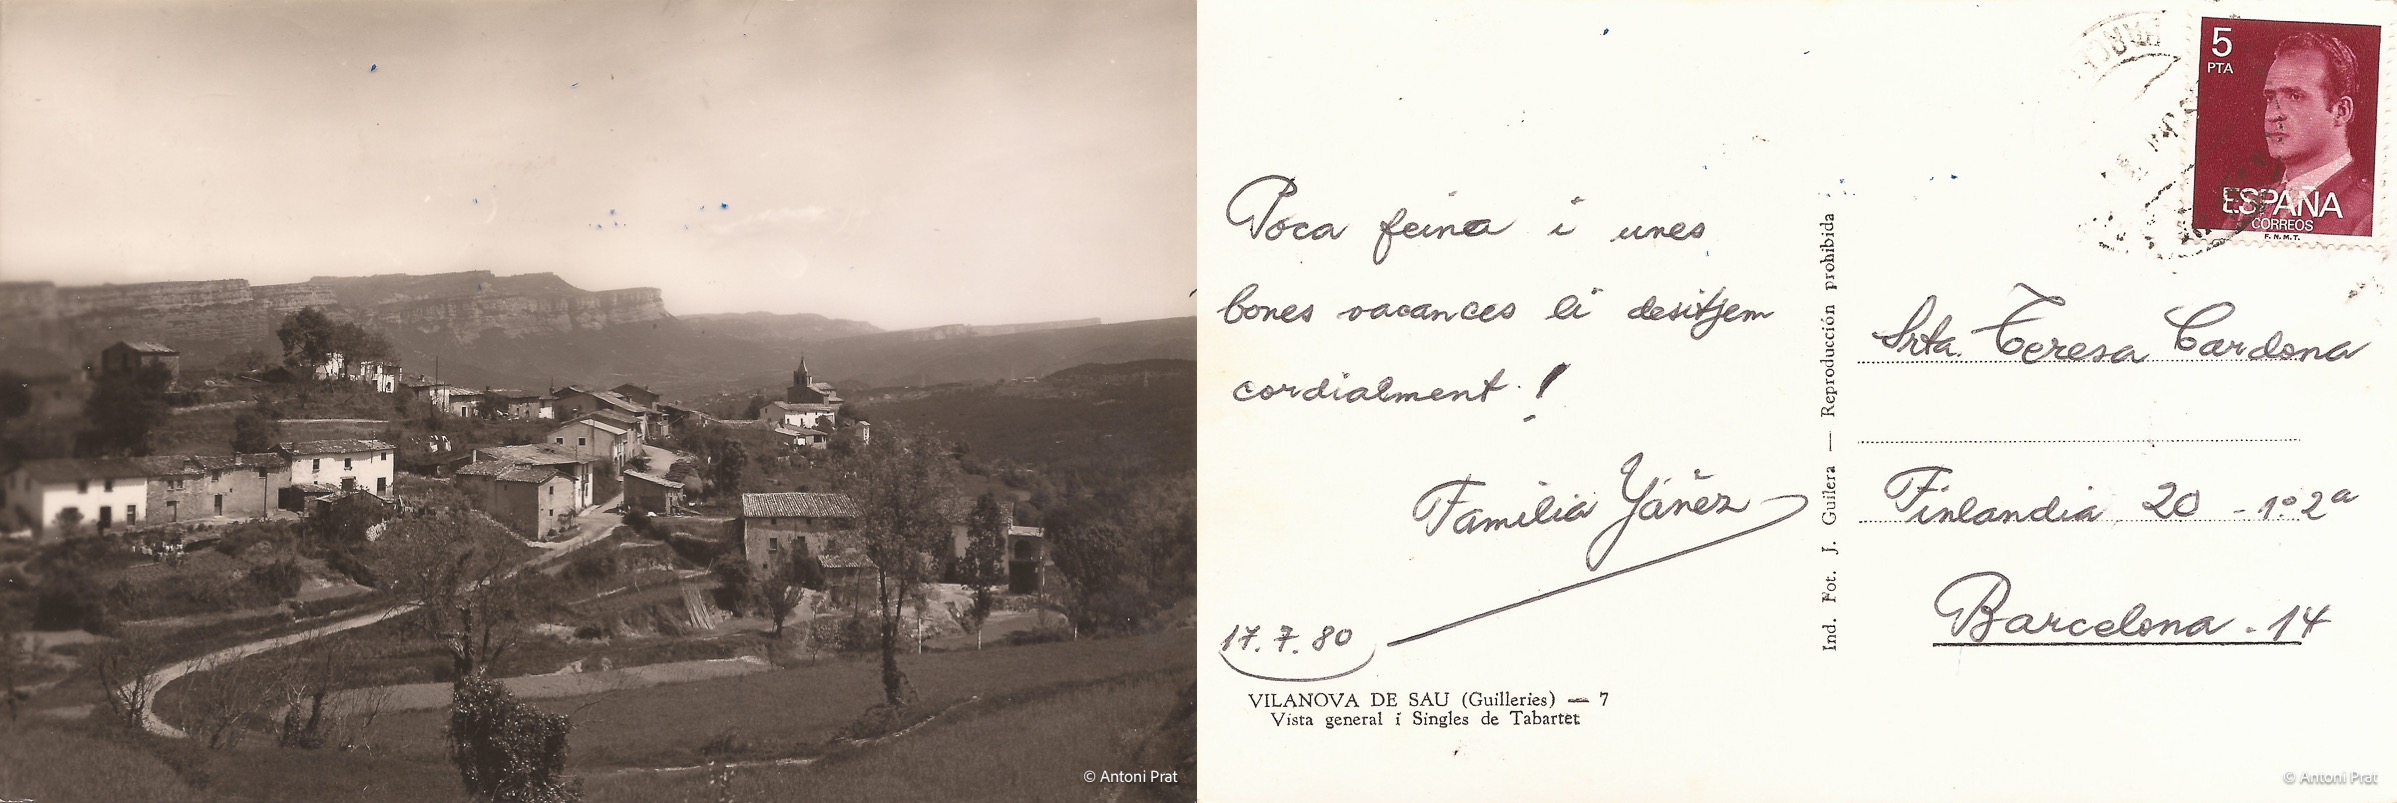 © Antoni Prat
Poca feina i unes
bones vacances li desitjem
cordialment !
Família Yáñez
17.7.80
VILANOVA DE SAU (Guilleries) — 7
Vista general i Singles de Tabartet
Ind. Fot. J. Guilera — Reproducción prohibida
5
PTA
ESPAÑA
CORREOS
F.N.M.T.
Srta. Teresa Cardona
Finlandia, 20 - 1º 2ª
Barcelona - 14
© Antoni Prat